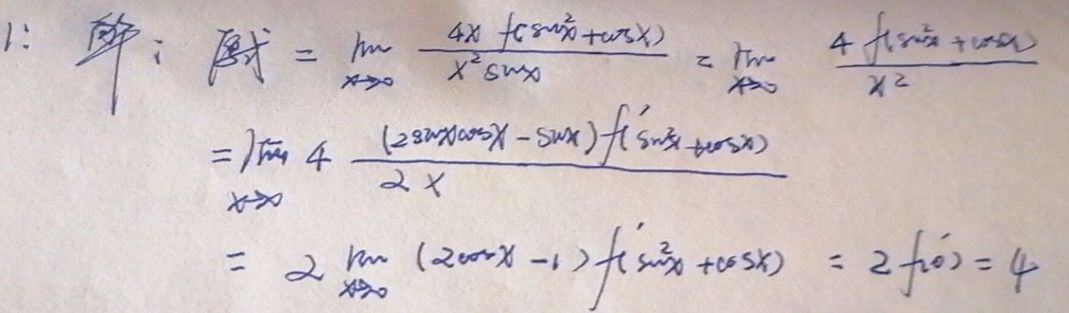 1: 解: 原式 = lim x→0 4x f(sin²x+cosx) / x² sinx = lim x→0 4 f(sin²x+cosx) / x²
= lim x→0 4 (2sinxcosx - sinx) f'(sin²x+cosx) / 2x
= 2 lim x→0 (2cosx - 1) f'(sin²x+cosx) = 2 f'(0) = 4